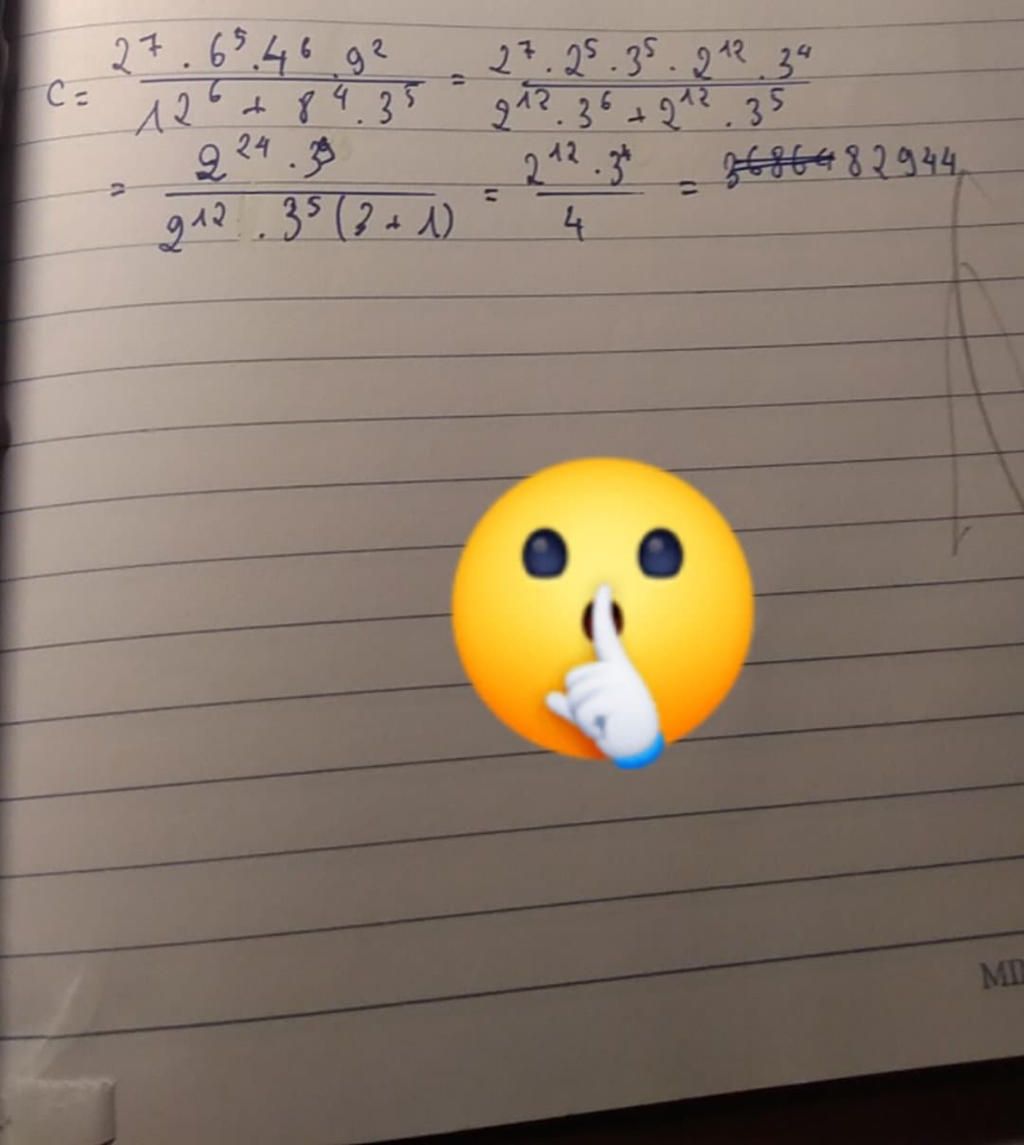 C = 2⁷ . 6⁵ . 4⁶ . 9² / 12⁶ + 8⁴ . 3⁵ = 2⁷ . 2⁵ . 3⁵ . 2¹² . 3⁴ / 2¹² . 3⁶ + 2¹² . 3⁵
= 2²⁴ . 3⁹ / 2¹² . 3⁵ (3 + 1) = 2¹² . 3⁴ / 4 = 36864 82944